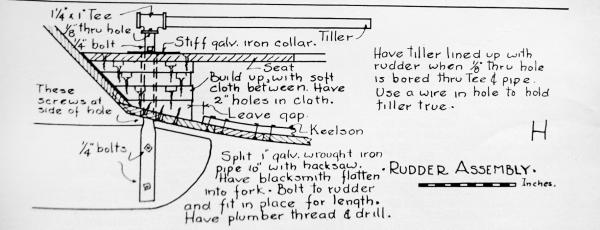 1¼" x 1" Tee
⅛" thru hole
¼" bolt
Stiff galv. iron collar.
Tiller
Seat
Build up, with soft
cloth between. Have
2" holes in cloth.
These
screws at
side of hole
Leave gap
Keelson
¼" bolts
Split 1" galv. wrought iron
pipe 10" with hacksaw.
Have blacksmith flatten
into fork. Bolt to rudder
and fit in place for length.
Have plumber thread & drill.
Have tiller lined up with
rudder when ⅛" thru hole
is bored thru Tee & pipe.
Use a wire in hole to hold
tiller true.
H
RUDDER ASSEMBLY.
Inches.